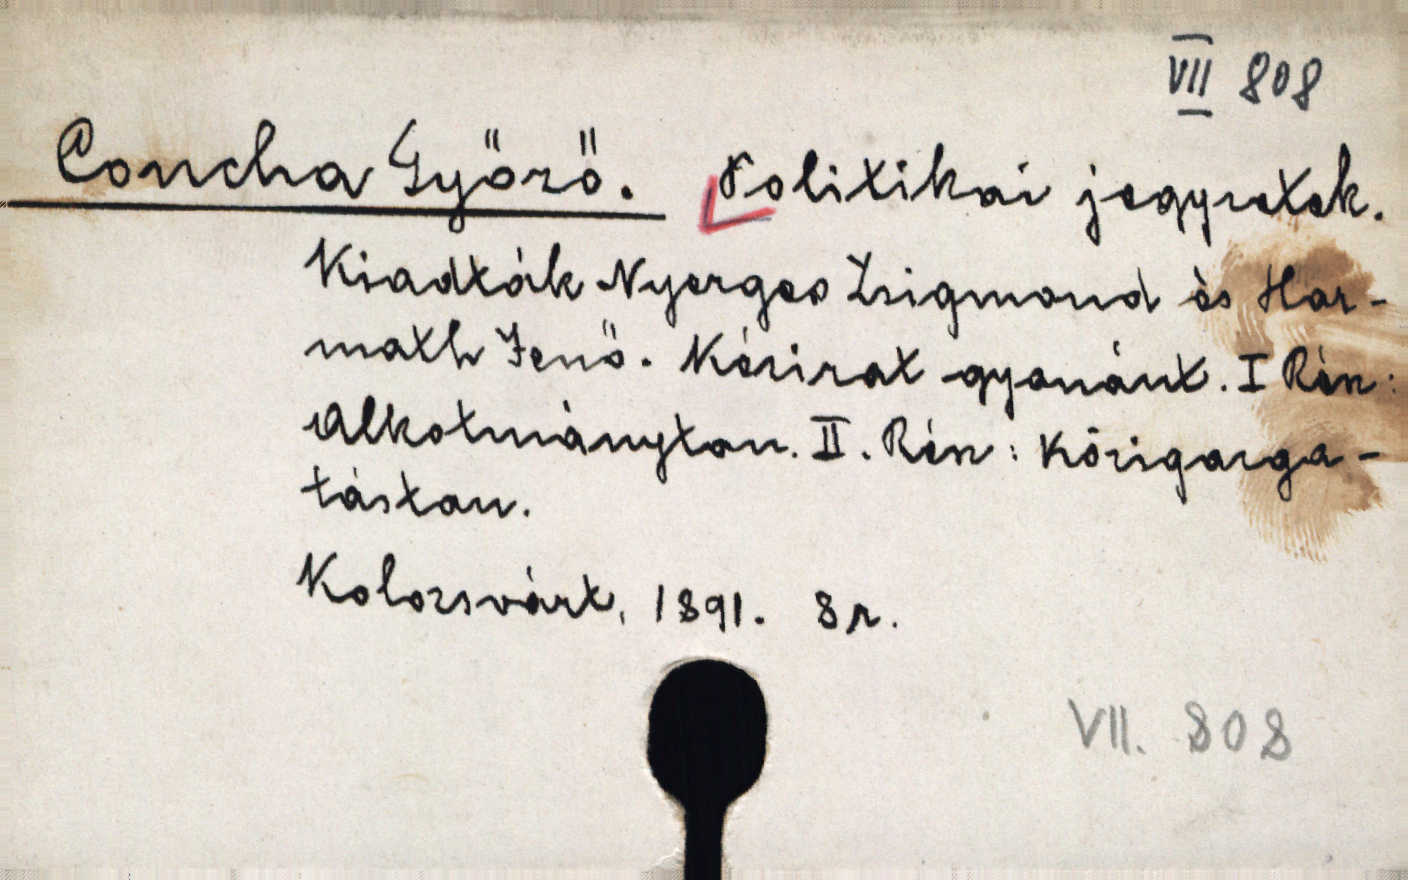 VII 808
Concha Győző. Politikai jegyzetek.
Kiadták Nyerges Zsigmond és Har-
math Jenő. Kézirat gyanánt. I Rész:
Alkotmánytan. II. Rész: Közigazga-
tástan.
Kolozsvárt, 1891. 8r.
VII. 808